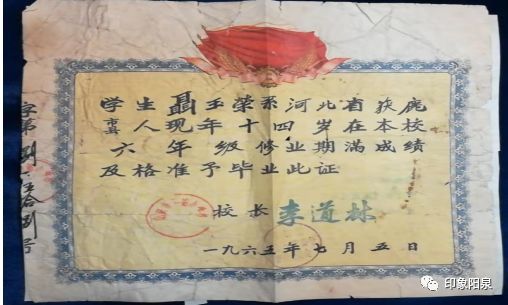 学生聶玉荣系河北省获鹿
市县人现年十四岁在本校
六年级修业期满成绩
及格准予毕业此证
校长李道林
一九六五年七月五日
字第捌
拾捌号
印象阳泉